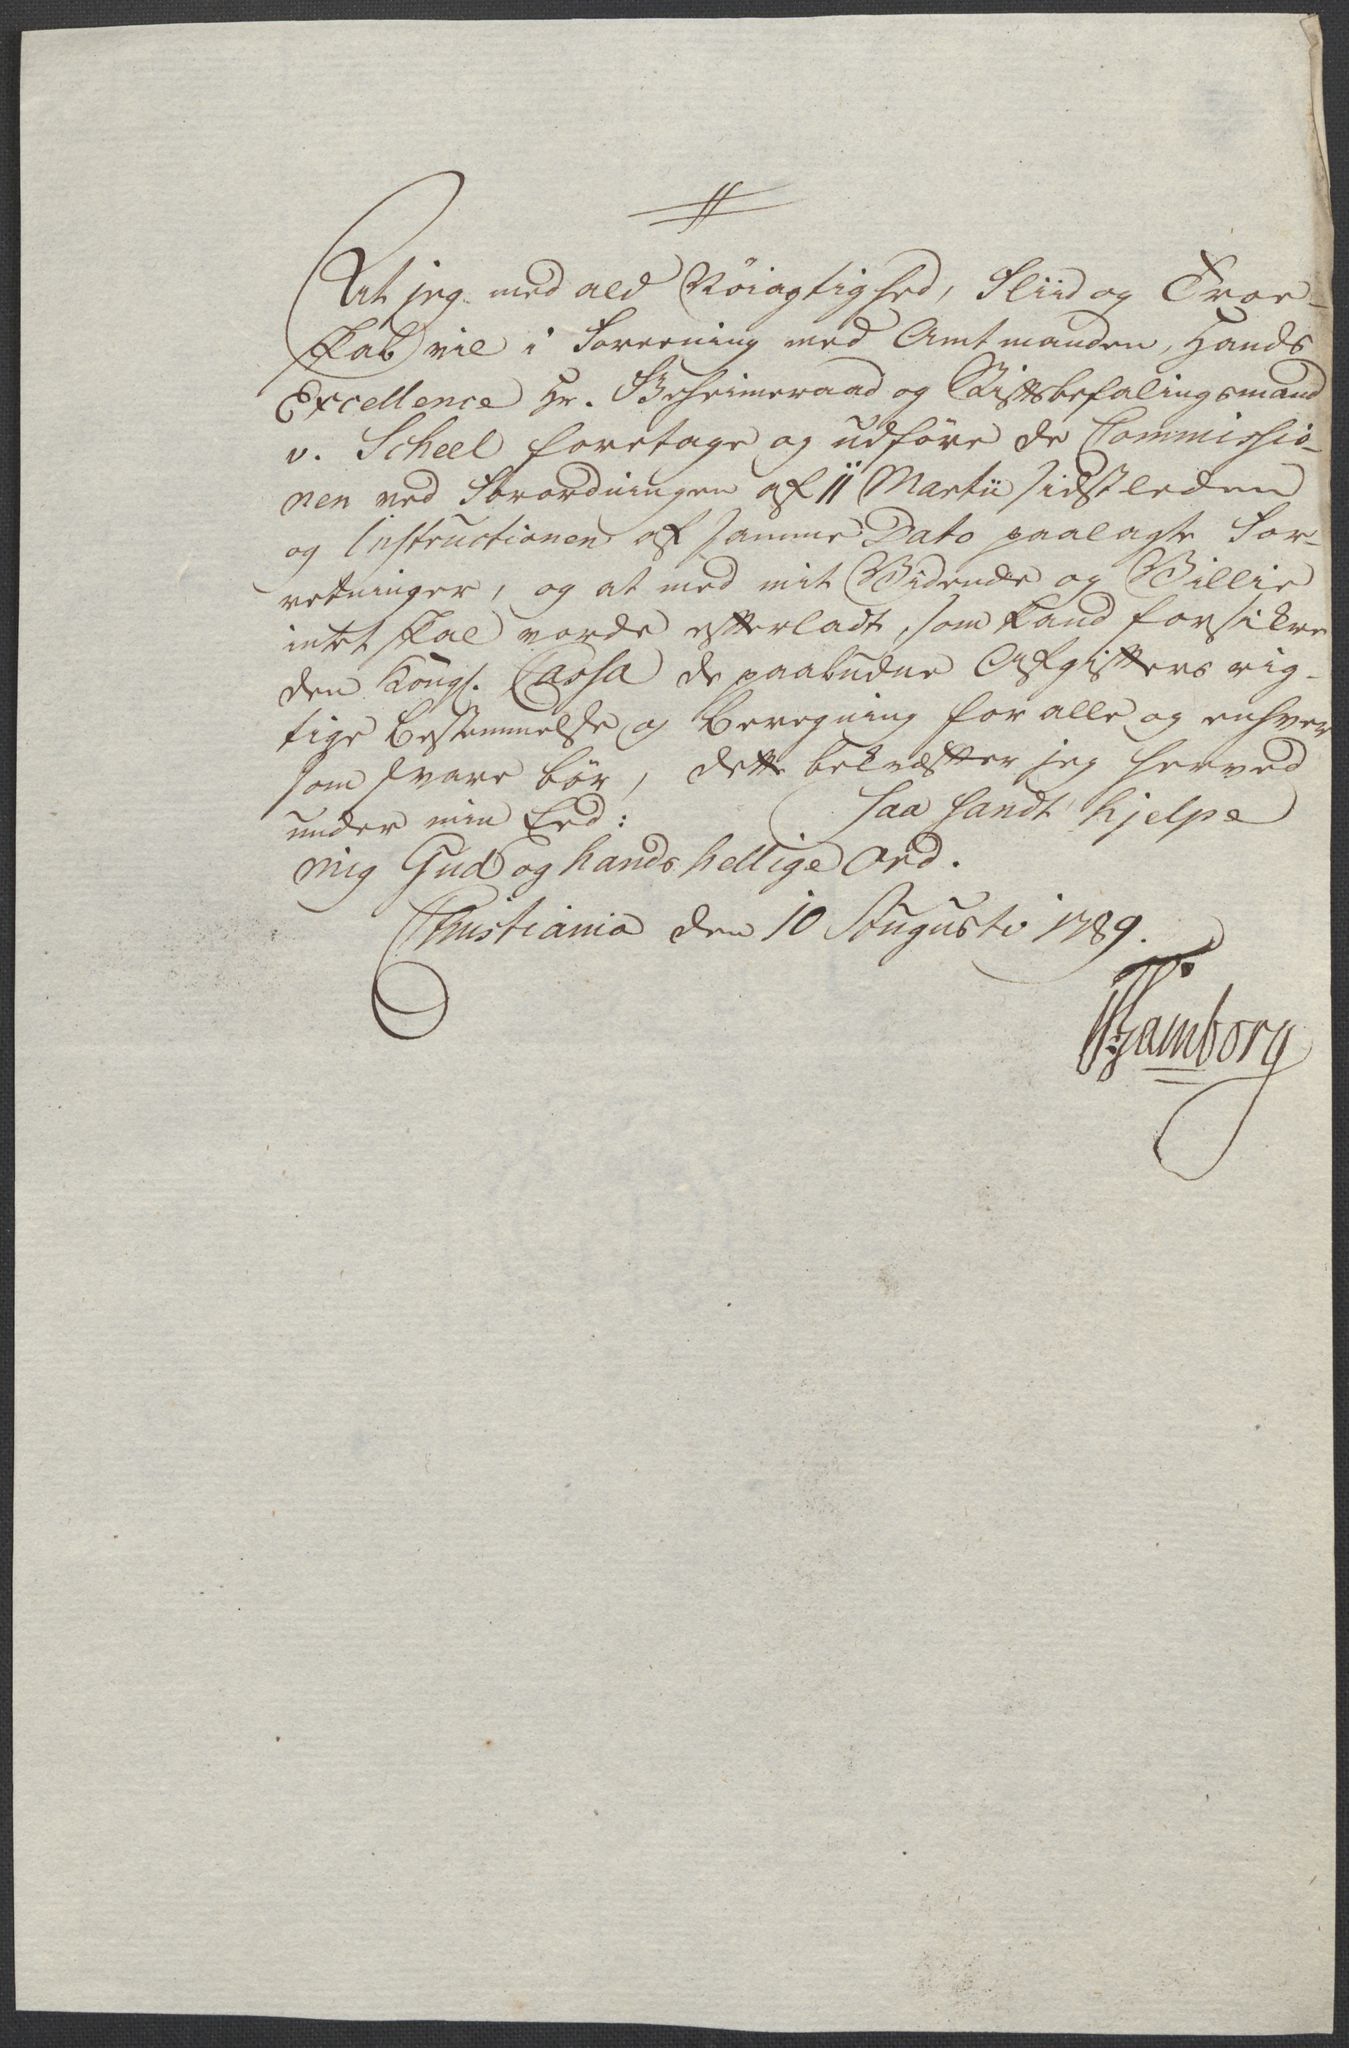 At jeg med ald Nöiagtighed, Fliid og Troe-
skab vil i Foreening med Amtmanden, Hands
Excellence Hr. Geheimeraad og Stiftsbefalingsmand
v. Scheel foretage og udföre de Commissio-
nen ved Forordningen af 11 Martii sidstleden
og Instructionen af samme Dato paalagte For-
retninger, og at med mit Vidende og Villie
intet skal vorde efterladt, som kand forsikre
den Kongl. Cassa de paabudne Afgifters rig-
tige Bestemmelse og Beregning for alle og enhver
som svare bör, dette bekræfter jeg herved
under min Eed: saa sandt hjelpe
mig Gud og hands hellige Ord.
Christiania den 10 Augusti 1789.
Bamborg